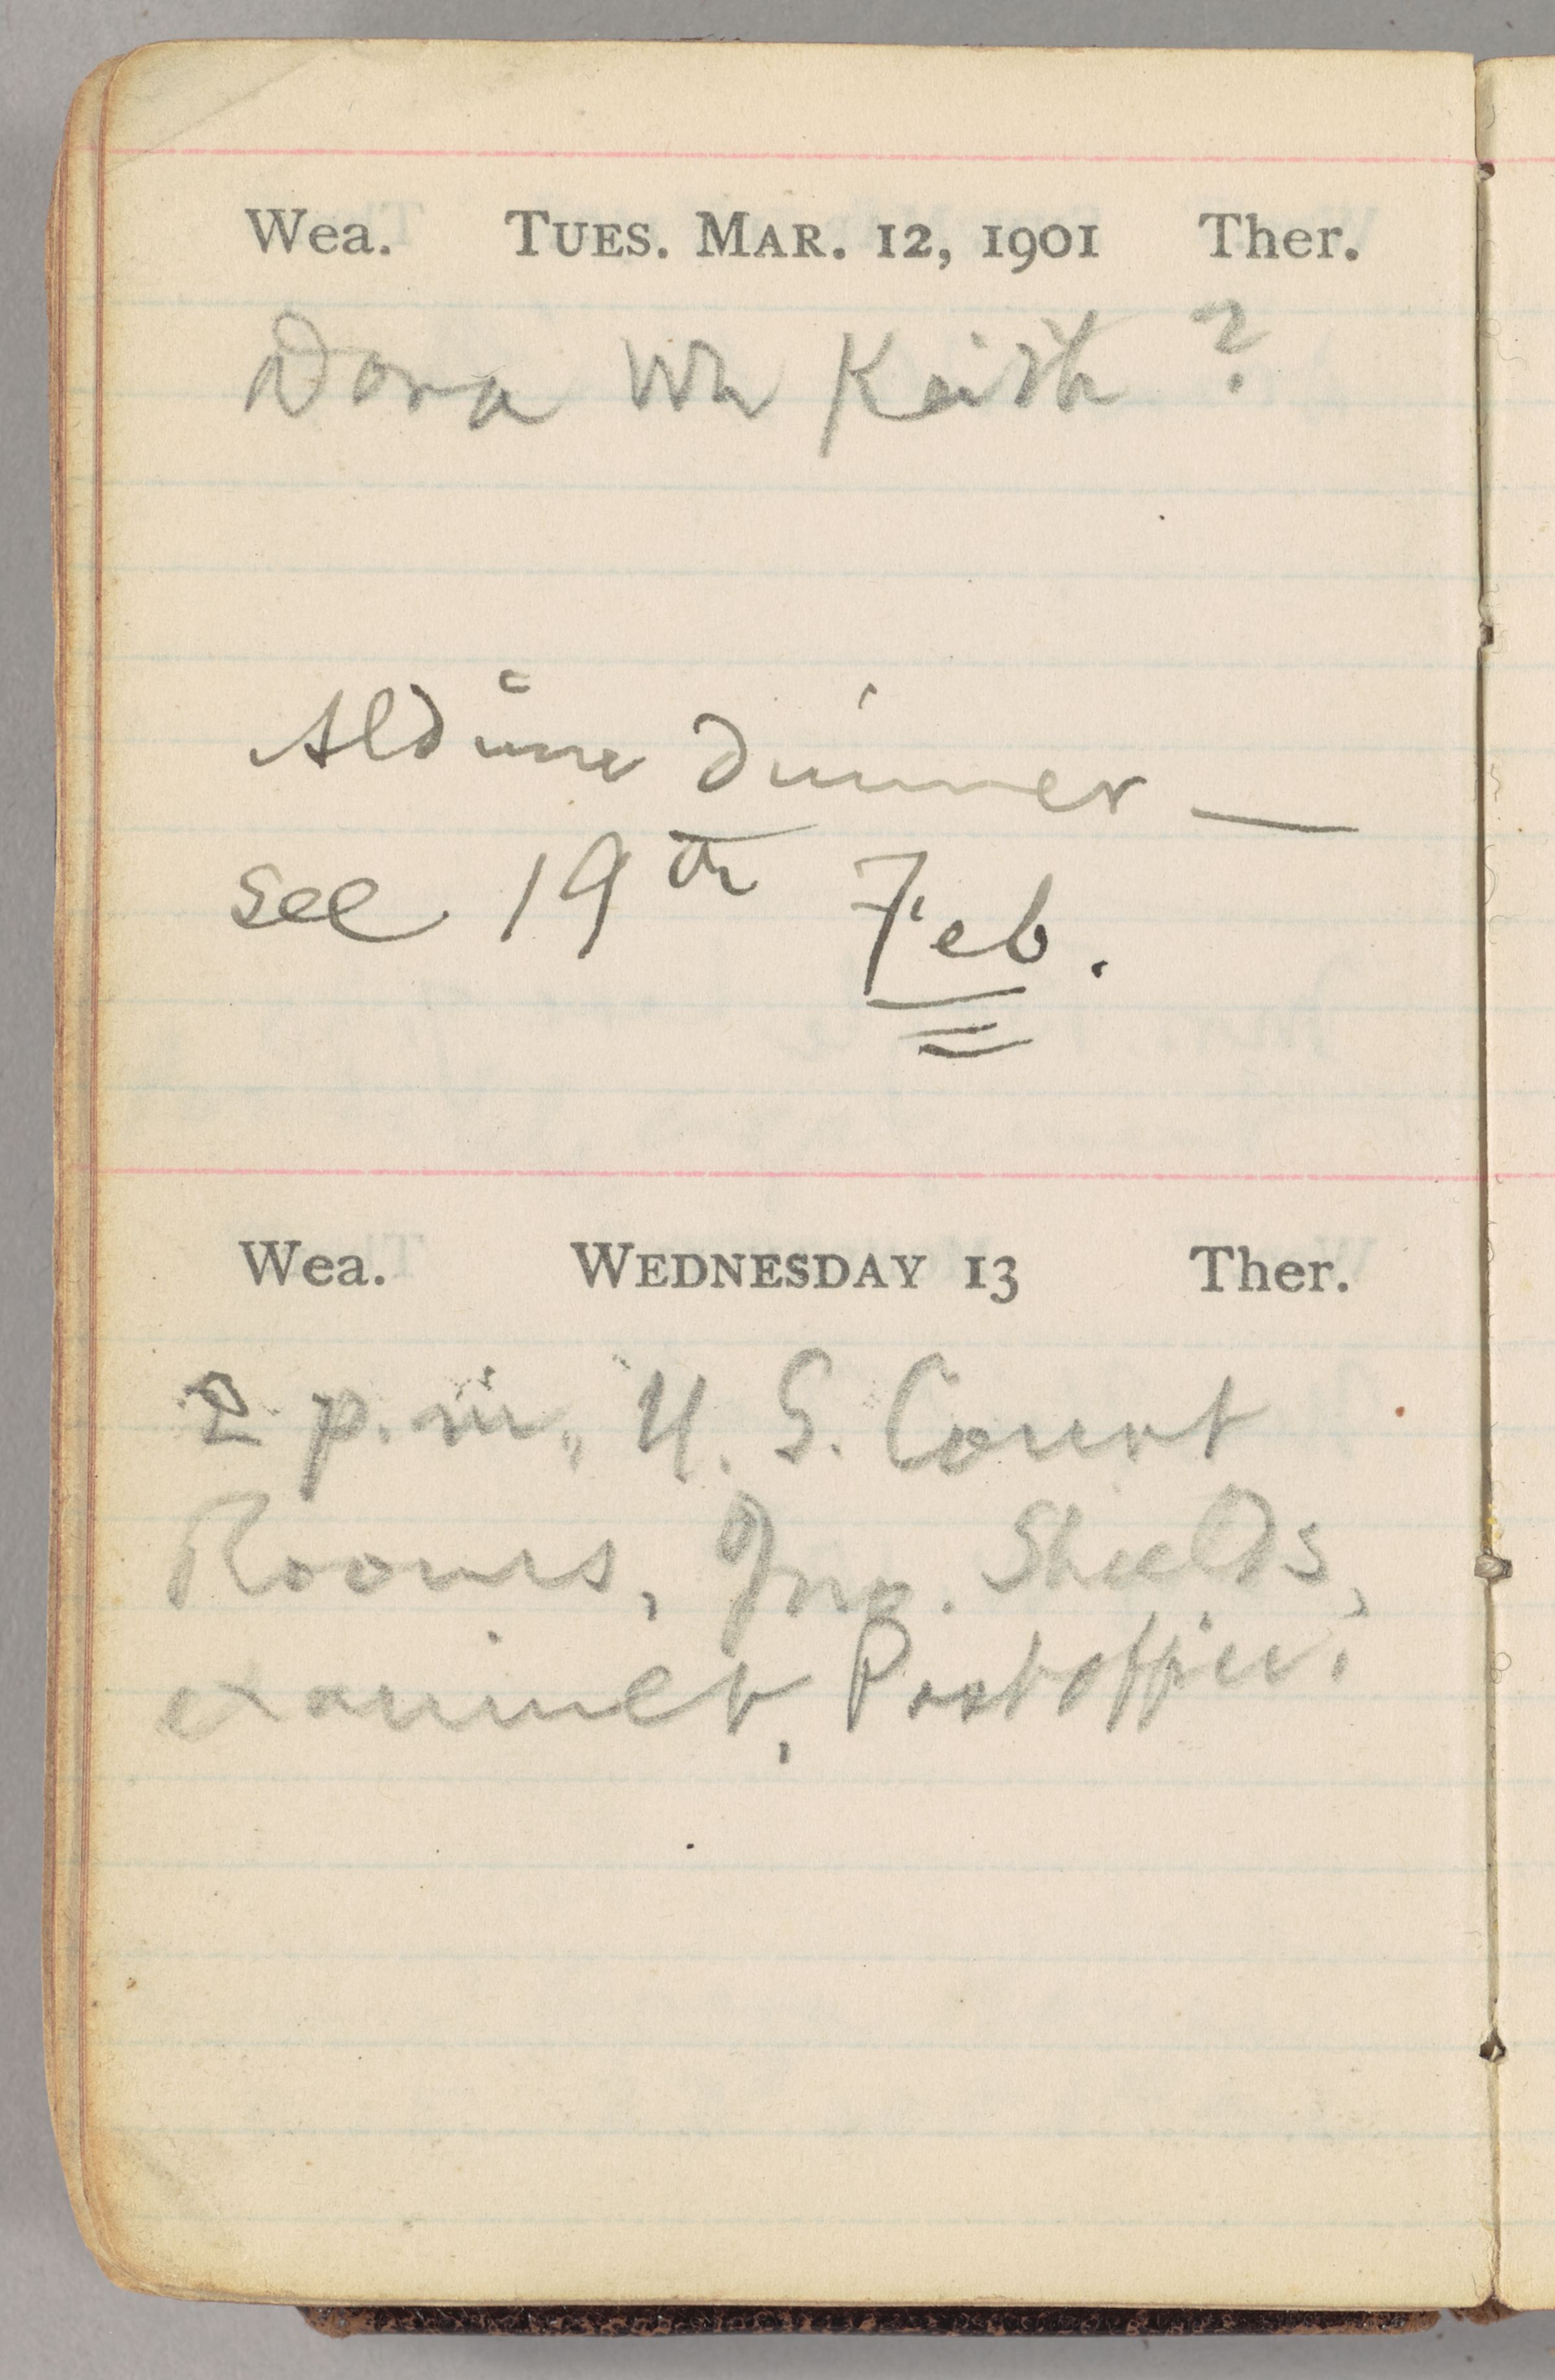 Wea. TUES. MAR. 12, 1901 Ther.
Dora Wh Keith ?
Aldine dinner —
see 19th Feb.
Wea. WEDNESDAY 13 Ther.
2 p.m., U. S. Court
Rooms, Jno. Shields,
examiner, Postoffice.